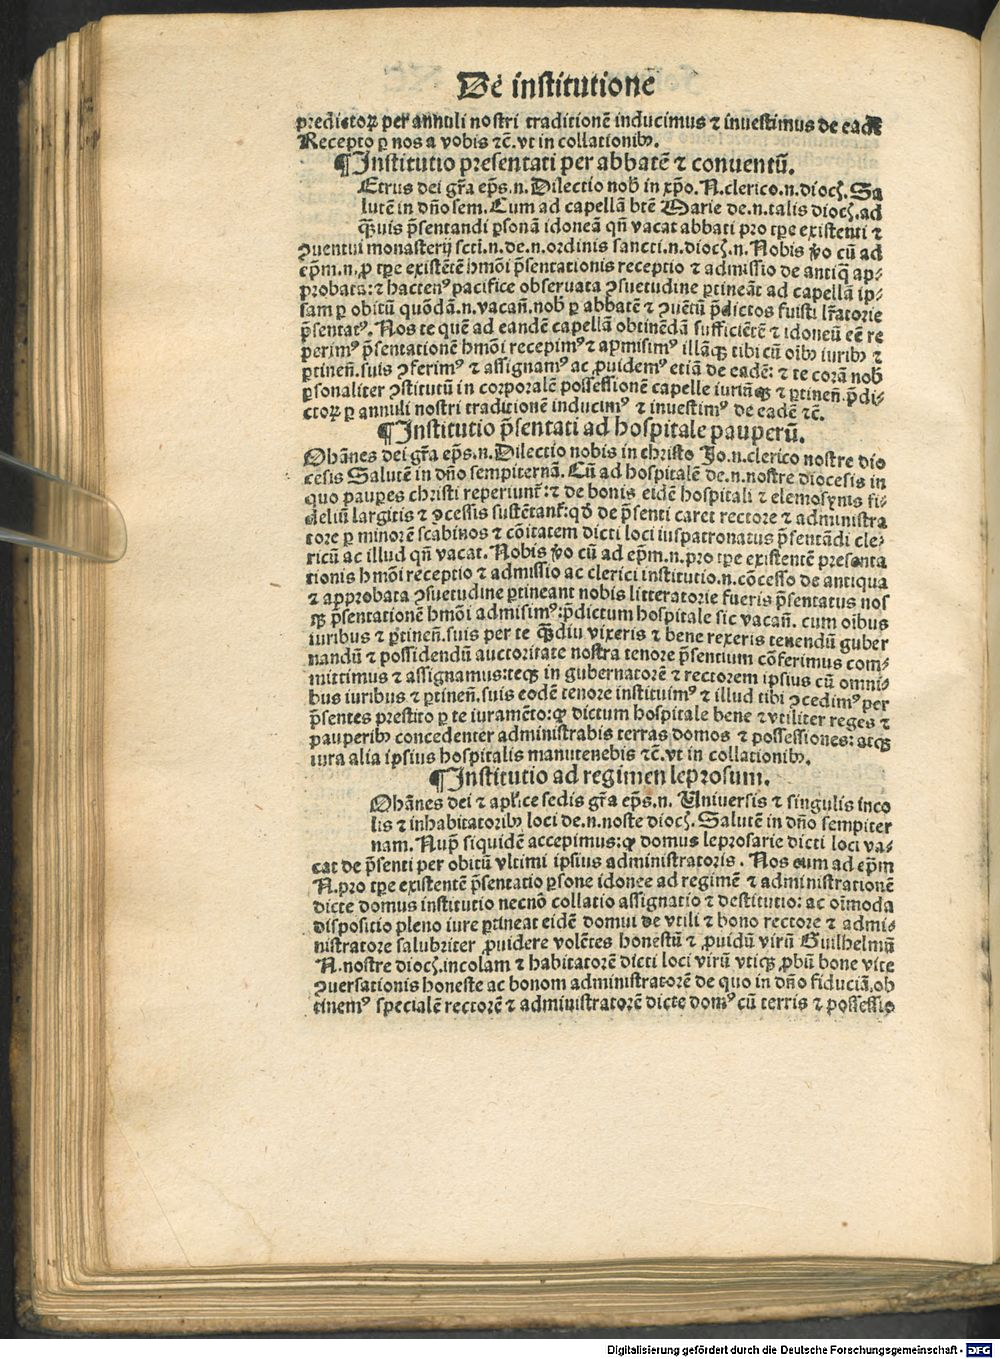 De institutione
predictoꝝ per annuli nostri traditionē inducimus ⁊ inuestimus de eadē
Recepto ꝑ nos a vobis ⁊cͣ. vt in collationibꝫ.
¶ Institutio presentati per abbatē ⁊ conuentū.
Etrus dei gr̄a ep̄s .n. Dilectio nob̄ in xp̄o. N. clerico .n. dioc̄. Sa
lutē in dn̄o sem. Cum ad capellā btē Marie de .n. talis dioc̄. ad
q̄uis p̄sentandi ꝑsonā idoneā qn̄ vacat abbati pro tp̄e existenti ⁊
ꝯuentui monasterij scti .n. de .n. ordinis sancti .n. dioc̄. n. Nobis ꝟo cū ad
ep̄m .n. ꝓ tp̄e existētē hmōi p̄sentationis receptio ⁊ admissio de antiq̄ ap-
probata: ⁊ hactenꝰ pacifice obseruata ꝯsuetudine ꝑtineāt ad capellā ip-
sam ꝑ obitū quōdā .n. vacan̄. nob̄ ꝑ abbatē ⁊ ꝯuētū p̄dictos fuisti lr̄atorie
p̄sentatꝰ. Nos te quē ad eandē capellā obtinēdā sufficiētē ⁊ idoneū eē re
perimꝰ p̄sentationē hmōi recepimꝰ ⁊ admisimꝰ illāqꝫ tibi cū oībꝫ iuribꝫ ⁊
ꝑtinen̄. suis ꝯferimꝰ ⁊ assignamꝰ ac ꝓuidemꝰ etiā de eadē: ⁊ te corā nob̄
ꝑsonaliter ꝯstitutū in corporalē possessionē capelle iuriūqꝫ ⁊ ꝑtinen̄. p̄di-
ctoꝝ ꝑ annuli nostri traditionē inducimꝰ ⁊ inuestimꝰ de eadē ⁊cͣ.
¶ Institutio p̄sentati ad hospitale pauperū.
Ohānes dei gr̄a ep̄s .n. Dilectio nobis in christo Jo. n. clerico nostre dio
cesis Salutē in dn̄o sempiternā. Cū ad hospitalē de .n. nostre diocesis in
quo pauꝑes christi reperiunt᷑: ⁊ de bonis eidē hospitali ⁊ elemosynis fi-
deliū largitis ⁊ ꝯcessis sustētant᷑: qd̄ de p̄senti caret rectore ⁊ administra
tore ꝑ minorē scabinos ⁊ cōitatem dicti loci iuspatronatus p̄sentādi cle-
ricū ac illud qn̄ vacat. Nobis ꝟo cū ad ep̄m .n. pro tp̄e existentē presenta
tionis hmōi receptio ⁊ admissio ac clerici institutio .n. cōcesso de antiqua
⁊ approbata ꝯsuetudine ꝑtineant nobis litteratorie fueris p̄sentatus nos
qꝫ p̄sentationē hmōi admisimꝰ: p̄dictum hospitale sic vacan̄. cum oibus
iuribus ⁊ ꝑtinen̄. suis per te qꝫdiu vixeris ⁊ bene rexeris tenendū guber
nandū ⁊ possidendū auctoritate nostra tenore p̄sentium cōferimus com-
mittimus ⁊ assignamus: teqꝫ in gubernatorē ⁊ rectorem ipsius cū omni-
bus iuribus ⁊ ꝑtinen̄. suis eodē tenore instituimꝰ ⁊ illud tibi ꝯcedimꝰ per
p̄sentes prestito ꝑ te iuramēto: ꝙ dictum hospitale bene ⁊ vtiliter reges ⁊
pauperibꝫ concedenter administrabis terras domos ⁊ possessiones: atqꝫ
iura alia ipsius hospitalis manutenebis ⁊cͣ. vt in collationibꝫ.
¶ Institutio ad regimen leprosum.
Ohānes dei ⁊ apl̄ice sedis gr̄a ep̄s .n. Uniuersis ⁊ singulis inco
lis ⁊ inhabitatoribꝫ loci de .n. noste dioc̄. Salutē in dn̄o sempiter
nam. Nuꝑ siquidē accepimus: ꝙ domus leprosarie dicti loci va-
cat de p̄senti per obitū vltimi ipsius administratoris. Nos cum ad ep̄m
N. pro tp̄e existentē p̄sentatio ꝑsone idonee ad regimē ⁊ administrationē
dicte domus institutio necnō collatio assignatio ⁊ destitutio: ac oīmoda
dispositio pleno iure ꝑtineat eidē domui de vtili ⁊ bono rectore ⁊ admi-
nistratore salubriter ꝓuidere volētes honestū ⁊ ꝓuidū virū Guilhelmū
N. nostre dioc̄. incolam ⁊ habitatorē dicti loci virū vtiqꝫ ꝓbū bone vite
ꝯuersationis honeste ac bonom administratorē de quo in dn̄o fiduciā. ob
tinemꝰ specialē rectorē ⁊ administratorē dicte domꝰ cū terris ⁊ possessio
Digitalisierung gefördert durch die Deutsche Forschungsgemeinschaft - DFG